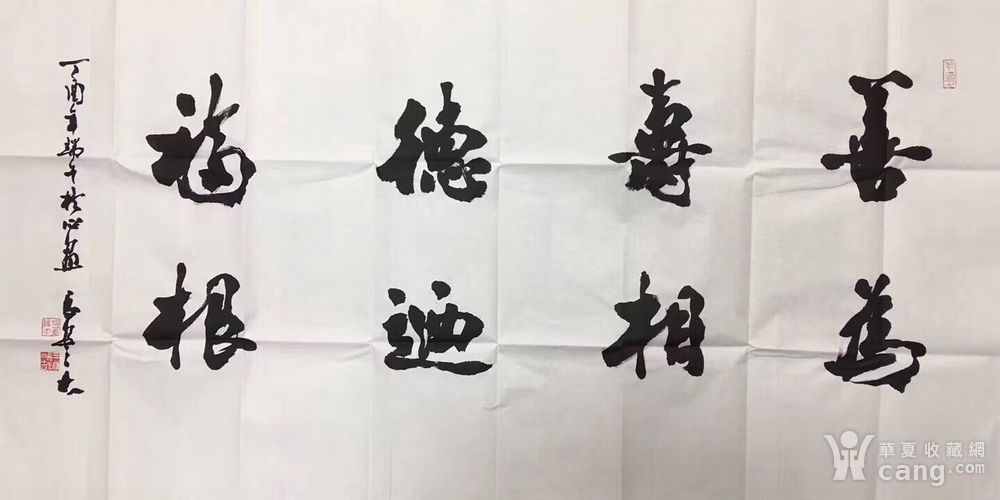 善為
壽相
德迺
福根
丁酉年端午於
華夏收藏網
cang.com